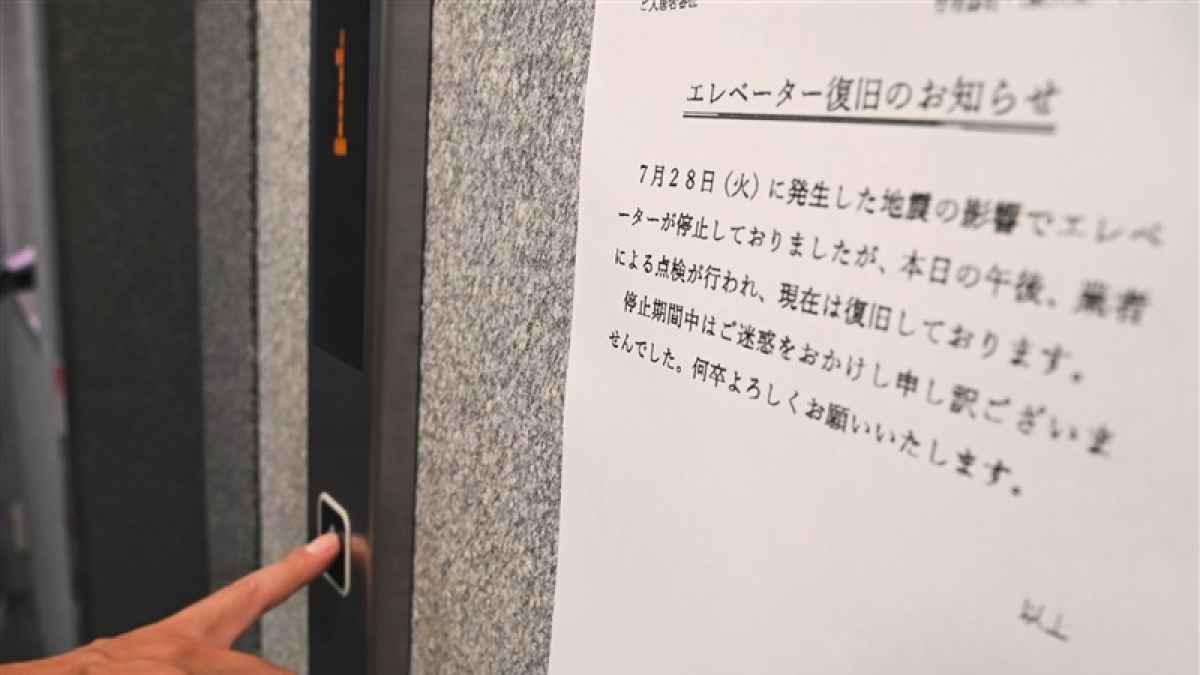 ご入居者各位
エレベーター復旧のお知らせ
7月28日(火)に発生した地震の影響でエレベ
ーターが停止しておりましたが、本日の午後、業者
による点検が行われ、現在は復旧しております。
停止期間中はご迷惑をおかけし申し訳ございま
せんでした。何卒よろしくお願いいたします。
以上